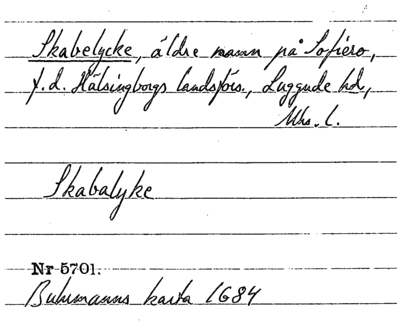 Skabelycke, äldre namn på Sofiero,
f.d. Hälsingborgs landsförs., Luggude hd,
Mhs. l.
Skabalyke
Nr 5701.
Buhrmanns karta 1684